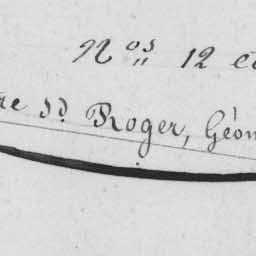 Nos 12 e
re sd. Roger, Géom